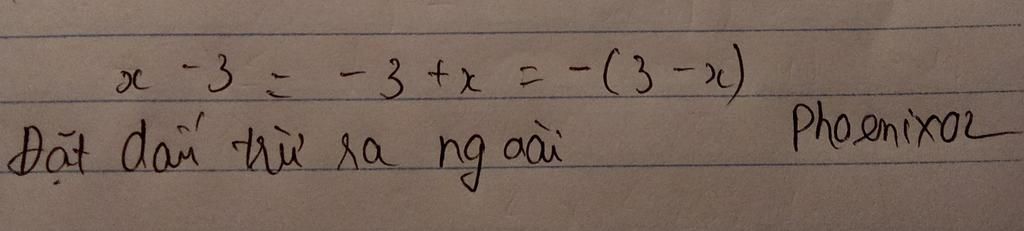 x - 3 = - 3 + x = - (3 - x)
Đặt dấu trừ ra ngoài
Phoenixoz